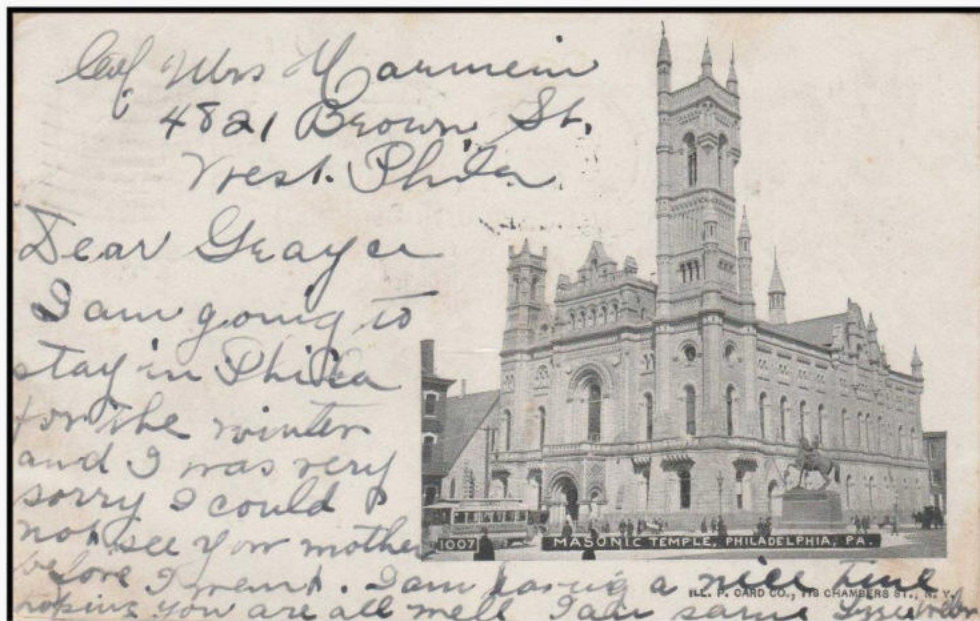 Mrs Harmein
4821 Brown, St.
West. Phila.
Dear
I am going to
stay in Phila
for the winter
and I was very
sorry I could
not see your mother
before I went. I am having a nice time
hoping you are all well I am same
1007
MASONIC TEMPLE, PHILADELPHIA, PA.
ILL. P. CARD CO., 118 CHAMBERS ST., N. Y.